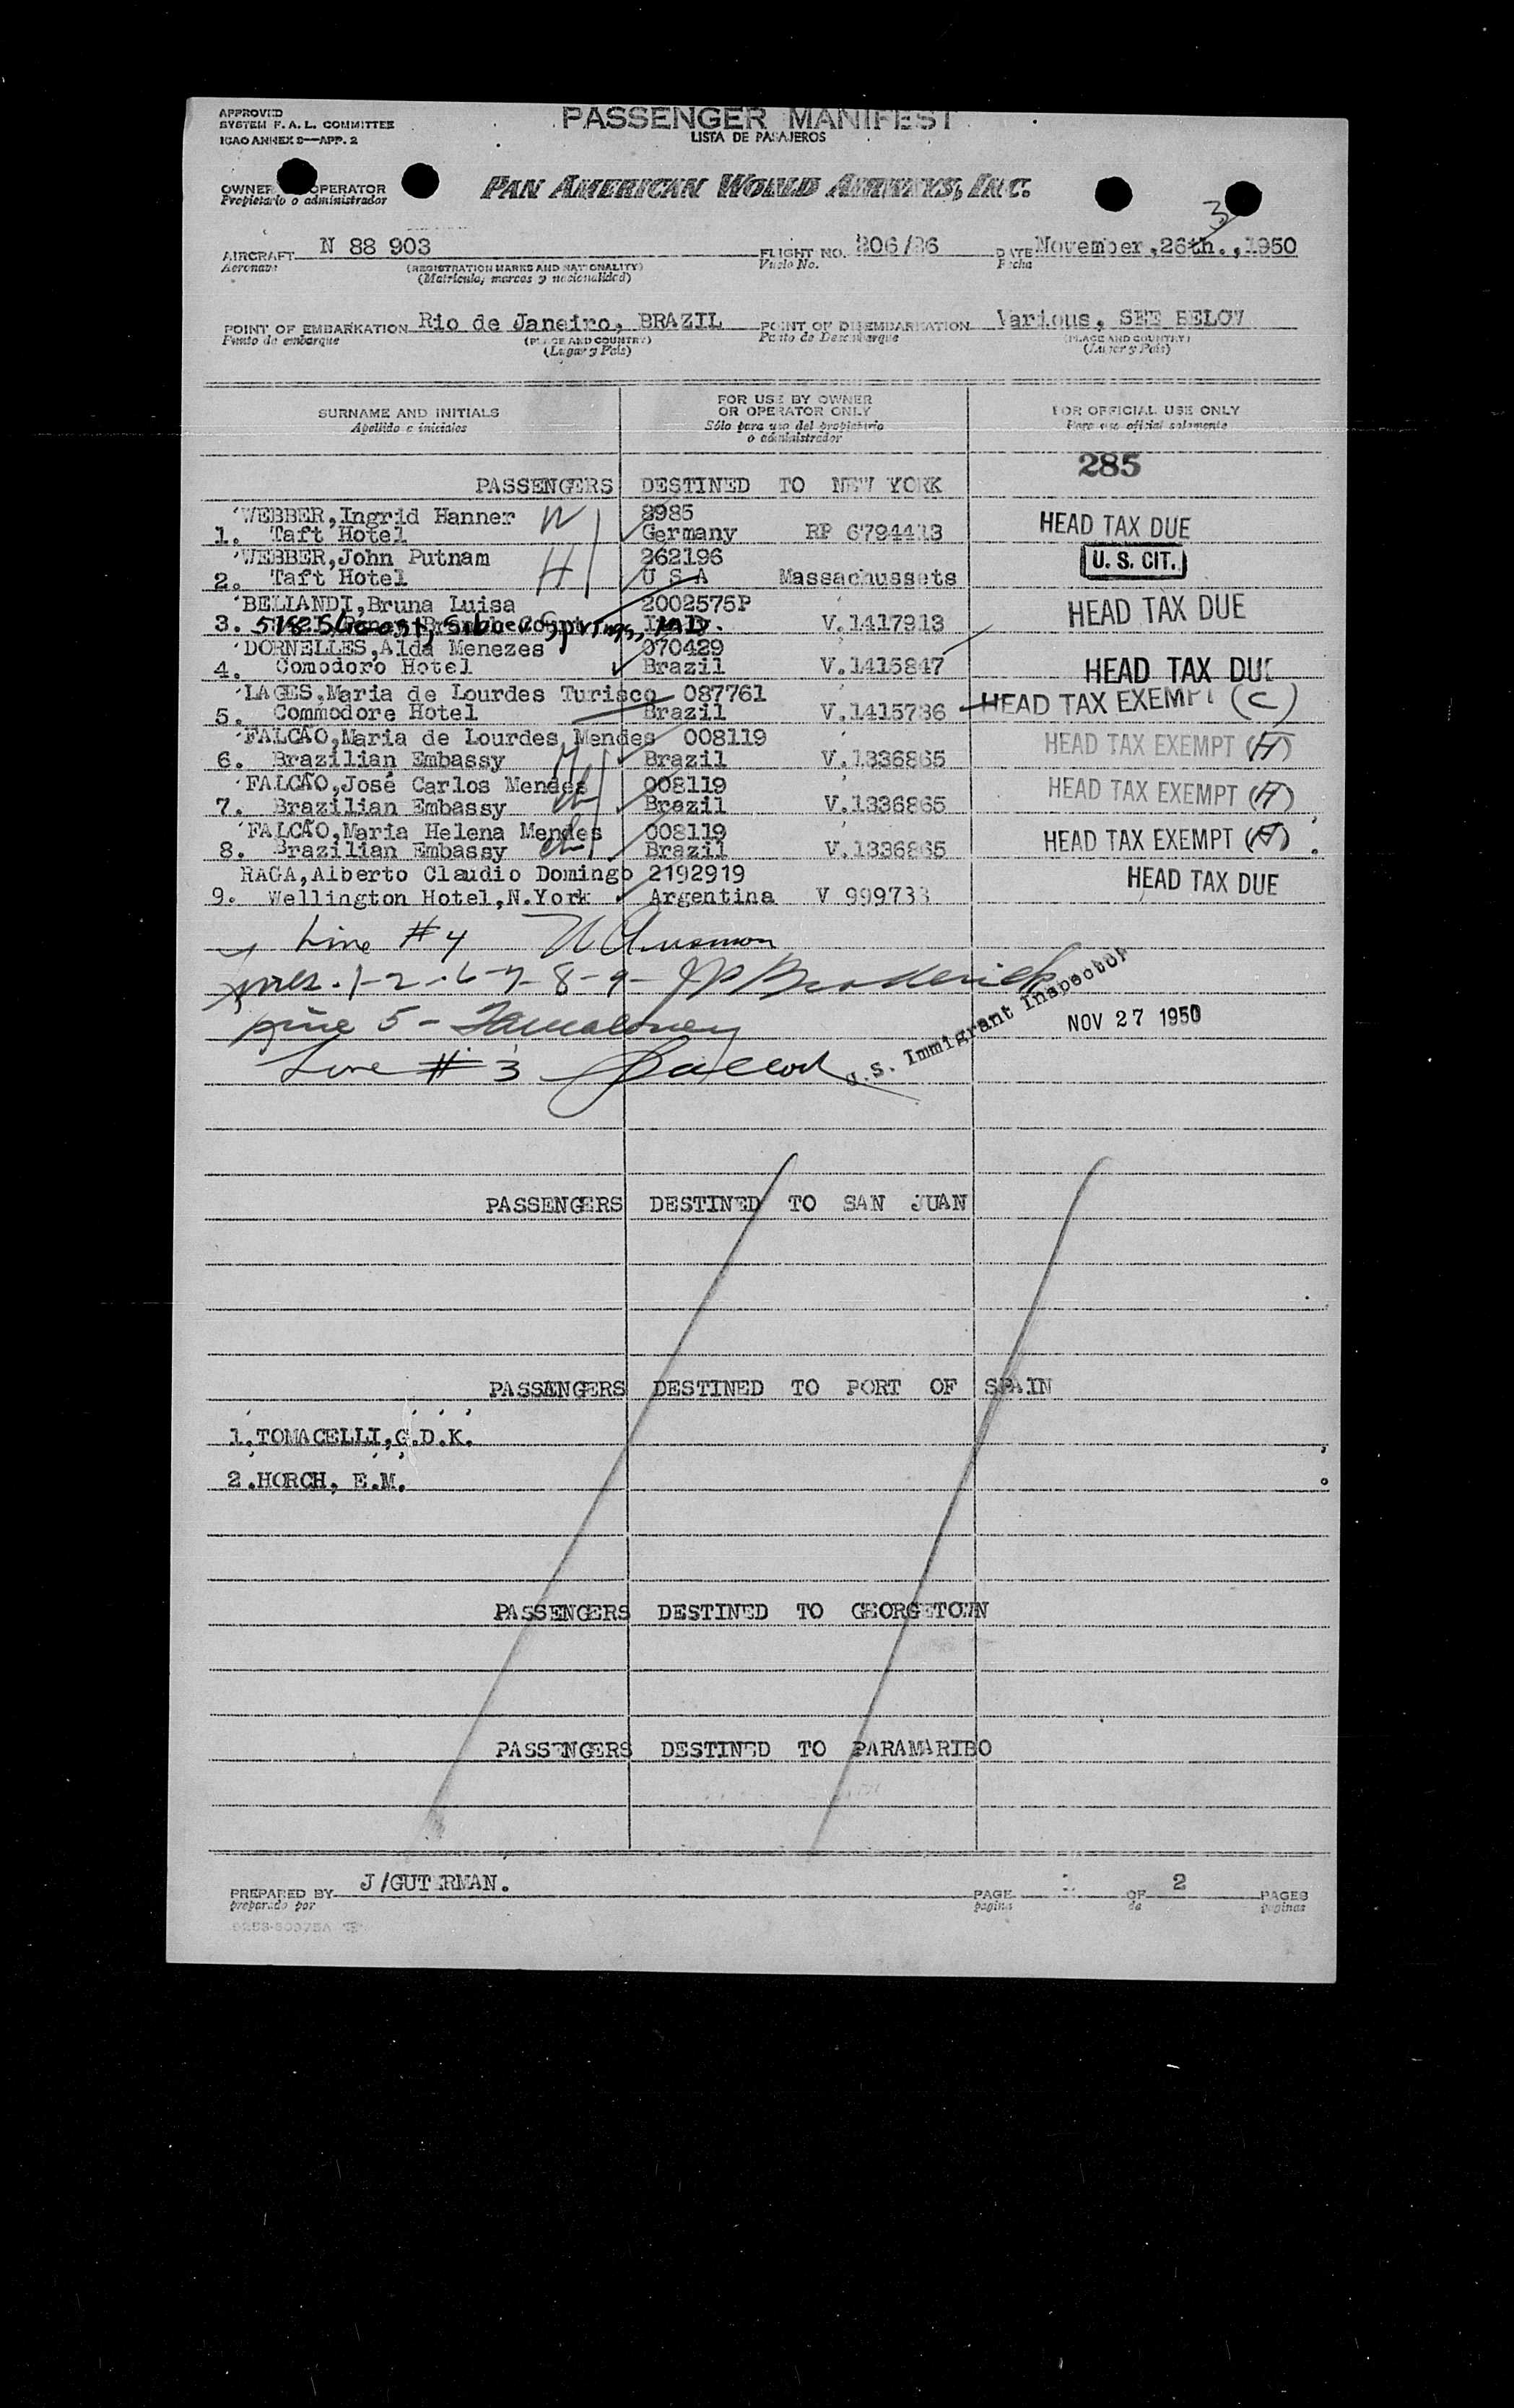 APPROVED
SYSTEM F. A. L. COMMITTEE
ICAO ANNEX 9—APP. 2
PASSENGER MANIFEST
LISTA DE PASAJEROS
OWNER OPERATOR
Propietario o administrador
PAN AMERICAN WORLD AIRWAYS, INC.
3
AIRCRAFT N 88 903 FLIGHT NO. 206/26 DATE November,26th.,1950
Aeronave (REGISTRATION MARKS AND NATIONALITY) Vuelo No. Fecha
(Matricula, marcas y nacionalidad)
POINT OF EMBARKATION Rio de Janeiro, BRAZIL POINT OF DISEMBARKATION Various, SEE BELOW
Punto de embarque (PLACE AND COUNTRY) Punto de Desembarque (PLACE AND COUNTRY)
(Lugar y Pais) (Lugar y Pais)
SURNAME AND INITIALS FOR USE BY OWNER OR OPERATOR ONLY FOR OFFICIAL USE ONLY
Apellido e iniciales Sólo para uso del propietario o administrador Para uso oficial solamente
285
PASSENGERS DESTINED TO NEW YORK
WEBBER,Ingrid Hanner W 8985
1. Taft Hotel Germany RP 6794413 HEAD TAX DUE
WEBBER,John Putnam H 262196
2. Taft Hotel U S A Massachussets U. S. CIT.
BELIANDI,Bruna Luisa 2002575P
3. Silver Springs, Md. V.1417913 HEAD TAX DUE
DORNELLES,Alda Menezes 070429
4. Comodoro Hotel Brazil V.1415847 HEAD TAX DUE
LAGES,Maria de Lourdes Turisco 087761
5. Commodore Hotel Brazil V.1415736 HEAD TAX EXEMPT (C)
FALCÃO,Maria de Lourdes Mendes 008119
6. Brazilian Embassy Brazil V.1336865 HEAD TAX EXEMPT (A)
FALCÃO,José Carlos Mendes 008119
7. Brazilian Embassy ch Brazil V.1336865 HEAD TAX EXEMPT (A)
FALCÃO,Maria Helena Mendes 008119
8. Brazilian Embassy ch Brazil V.1336865 HEAD TAX EXEMPT (A)
RAGA,Alberto Claudio Domingo 2192919
9. Wellington Hotel,N.York Argentina V 999733 HEAD TAX DUE
Line #4
1-2-6-7-8-9- JP Broderick
5 -
Line # 3
U.S. Immigrant Inspector
NOV 27 1950
PASSENGERS DESTINED TO SAN JUAN
PASSENGERS DESTINED TO PORT OF SPAIN
1.TOMACELLI,G.D.K.
2.HORCH, E.M.
PASSENGERS DESTINED TO GEORGETOWN
PASSENGERS DESTINED TO PARAMARIBO
PREPARED BY J/GUTERMAN. PAGE 1 OF 2 PAGES
preparado por pagina de paginas